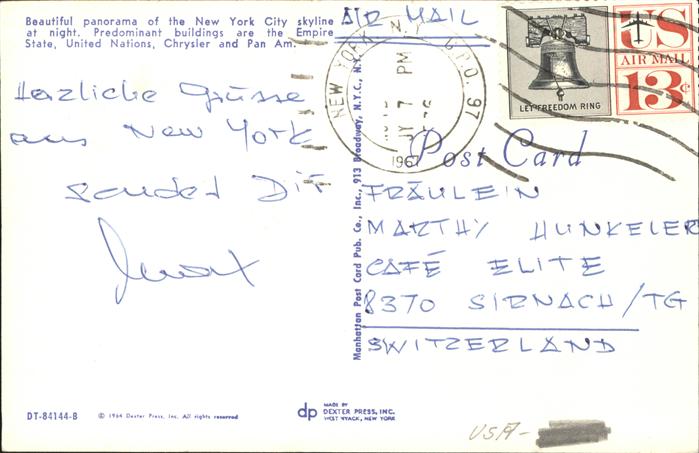 Beautiful panorama of the New York City skyline
at night. Predominant buildings are the Empire
State, United Nations, Chrysler and Pan Am.
AIR MAIL
NEW YORK N.Y. G.P.O. 97
7 PM
1967
LET FREEDOM RING
US
AIR MAIL
13¢
Post Card
Herzliche Grüsse
aus New York
sendet Dir
FRÄULEIN
MARTHY HUNKELER
CAFÉ ELITE
8370 SIRNACH/TG
SWITZERLAND
Manhattan Post Card Pub. Co., Inc., 913 Broadway, N.Y.C., N.Y.
DT-84144-B
© 1964 Dexter Press, Inc. All rights reserved
dp
MADE BY
DEXTER PRESS, INC.
WEST NYACK, NEW YORK
USA-